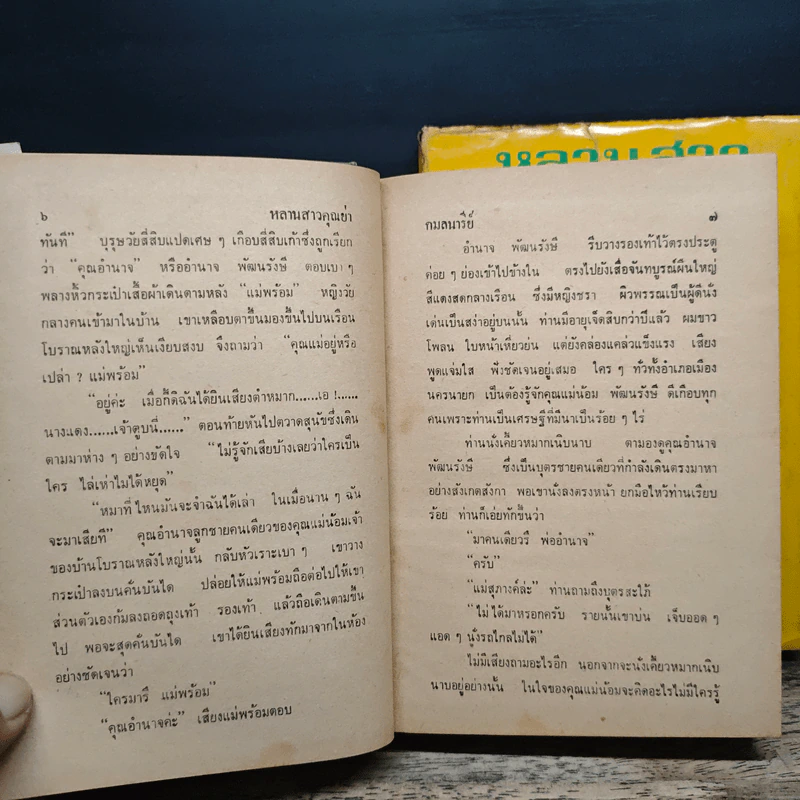 หลานสาว
๖ หลานสาวคุณย่า
ทันที" บุรุษวัยสี่สิบแปดเศษ ๆ เกือบสี่สิบเก้าซึ่งถูกเรียก
ว่า "คุณอำนาจ" หรืออำนาจ พัฒนรังษี ตอบเบา ๆ
พลางหิ้วกระเป๋าเสื้อผ้าเดินตามหลัง "แม่พร้อม" หญิงวัย
กลางคนเข้ามาในบ้าน เขาเหลือบตาขึ้นมองขึ้นไปบนเรือน
โบราณหลังใหญ่เห็นเงียบสงบ จึงถามว่า "คุณแม่อยู่หรือ
เปล่า ? แม่พร้อม"
"อยู่ค่ะ เมื่อกี้ดิฉันได้ยินเสียงตำหมาก......เอ !......
นางแดง......เจ้าตูบนี่......" ตอนท้ายหันไปตวาดสุนัขซึ่งเดิน
ตามมาห่าง ๆ อย่างขัดใจ "ไม่รู้จักเสียบ้างเลยว่าใครเป็น
ใคร ไล่เห่าไม่ได้หยุด"
"หมาที่ไหนมันจะจำฉันได้เล่า ในเมื่อนาน ๆ ฉัน
จะมาเสียที" คุณอำนาจลูกชายคนเดียวของคุณแม่น้อมเจ้า
ของบ้านโบราณหลังใหญ่นั้น กลับหัวเราะเบา ๆ เขาวาง
กระเป๋าลงบนคั่นบันได ปล่อยให้แม่พร้อมถือต่อไปให้เขา
ส่วนตัวเองก้มลงถอดถุงเท้า รองเท้า แล้วถือเดินตามขึ้น
ไป พอจะสุดคั่นบันได เขาได้ยินเสียงทักมาจากในห้อง
อย่างชัดเจนว่า
"ใครมารึ แม่พร้อม"
"คุณอำนาจค่ะ" เสียงแม่พร้อมตอบ
กมลนารีย์ ๗
อำนาจ พัฒนรังษี รีบวางรองเท้าไว้ตรงประตู
ค่อย ๆ ย่องเข้าไปข้างใน ตรงไปยังเสื่อจันทบูรณ์ผืนใหญ่
สีแดงสดกลางเรือน ซึ่งมีหญิงชรา ผิวพรรณเป็นผู้ดีนั่ง
เด่นเป็นสง่าอยู่บนนั้น ท่านมีอายุเจ็ดสิบกว่าปีแล้ว ผมขาว
โพลน ใบหน้าเหี่ยวย่น แต่ยังคล่องแคล่วแข็งแรง เสียง
พูดแจ่มใส ฟังชัดเจนอยู่เสมอ ใคร ๆ ทั่วทั้งอำเภอเมือง
นครนายก เป็นต้องรู้จักคุณแม่น้อม พัฒนรังษี ดีเกือบทุก
คนเพราะท่านเป็นเศรษฐีที่มีนาเป็นร้อย ๆ ไร่
ท่านนั่งเคี้ยวหมากเนิบนาบ ตามองดูคุณอำนาจ
พัฒนรังษี ซึ่งเป็นบุตรชายคนเดียวที่กำลังเดินตรงมาหา
อย่างสังเกตสังกา พอเขานั่งลงตรงหน้า ยกมือไหว้ท่านเรียบ
ร้อย ท่านก็เอ่ยทักขึ้นว่า
"มาคนเดียวรึ พ่ออำนาจ"
"ครับ"
"แม่สุภางค์ล่ะ" ท่านถามถึงบุตรสะใภ้
"ไม่ได้มาหรอกครับ รายนั้นเขาบ่น เจ็บออด ๆ
แอด ๆ นั่งรถไกลไม่ได้"
ไม่มีเสียงถามอะไรอีก นอกจากจะนั่งเคี้ยวหมากเนิบ
นาบอยู่อย่างนั้น ในใจของคุณแม่น้อมจะคิดอะไรไม่มีใครรู้